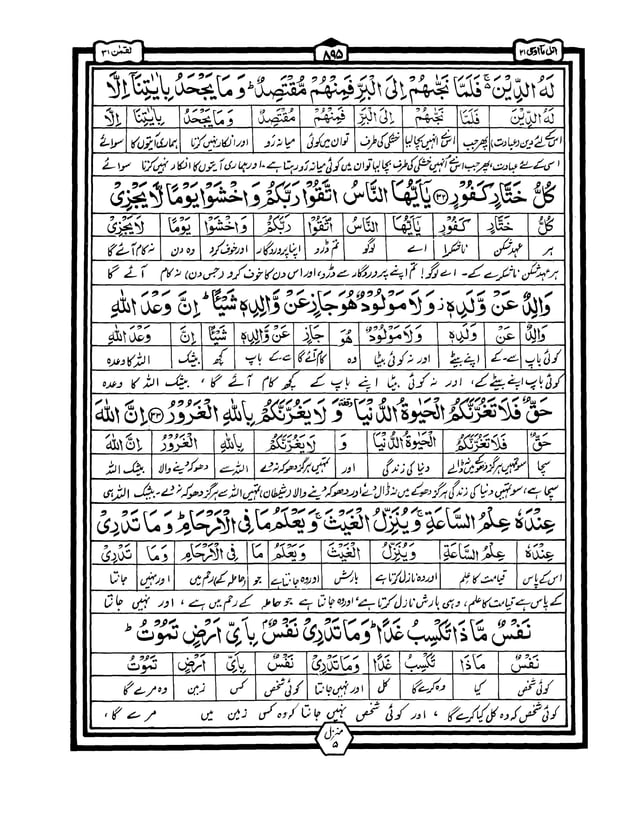 اتل ما اوحی ۲۱ ۸۹۵ لقمٰن ۳۱
لَهُ الدِّيْنَ ۚ فَلَمَّا نَجّٰىهُمْ اِلَى الْبَرِّ فَمِنْهُمْ مُّقْتَصِدٌ ؕ وَمَا يَجْحَدُ بِاٰيٰتِنَاۤ اِلَّا
لَهُ الدِّيْنَ فَلَمَّا نَجّٰىهُمْ اِلَى الْبَرِّ فَمِنْهُمْ مُّقْتَصِدٌ وَمَا يَجْحَدُ بِاٰيٰتِنَا اِلَّا
اس کے لئے دین (عبادت) پھر جب اس نے انہیں بچا لیا خشکی کی طرف تو ان میں کوئی میانہ رَو اور انکار نہیں کرتا ہماری آیتوں کا سوائے
اسی کے لئے عبادت، پھر جب اس نے انہیں خشکی کی طرف بچا لیا تو ان میں کوئی میانہ رَو رہتا ہے۔ اور ہماری آیتوں کا انکار نہیں کرتا سوائے
كُلُّ خَتَّارٍ كَفُوْرٍ ﴿۳۲﴾ يٰۤاَيُّهَا النَّاسُ اتَّقُوْا رَبَّكُمْ وَاخْشَوْا يَوْمًا لَّا يَجْزِيْ
كُلُّ خَتَّارٍ كَفُوْرٍ يٰۤاَيُّهَا النَّاسُ اتَّقُوْا رَبَّكُمْ وَاخْشَوْا يَوْمًا لَّا يَجْزِيْ
ہر عہد شکن ناشکرا اے لوگو تم ڈرو اپنا پروردگار اور خوف کرو وہ دن نہ کام آئے گا
ہر عہد شکن ناشکرے کے۔ اے لوگو! تم اپنے پروردگار سے ڈرو، اور اس دن کا خوف کرو (جس دن) نہ کام آئے گا
وَالِدٌ عَنْ وَّلَدِهٖ ز وَلَا مَوْلُوْدٌ هُوَ جَازٍ عَنْ وَّالِدِهٖ شَيْـًٔا ؕ اِنَّ وَعْدَ اللّٰهِ
وَالِدٌ عَنْ وَلَدِهٖ وَلَا مَوْلُوْدٌ هُوَ جَازٍ عَنْ وَّالِدِهٖ شَيْـًٔا اِنَّ وَعْدَ اللّٰهِ
کوئی باپ سے۔کے اپنے بیٹے اور نہ کوئی بیٹا وہ کام آئے گا سے کے باپ کچھ بیشک اللہ کا وعدہ
کوئی باپ اپنے بیٹے کے، اور نہ کوئی بیٹا اپنے باپ کے کچھ کام آئے گا، بیشک اللہ کا وعدہ
حَقٌّ فَلَا تَغُرَّنَّكُمُ الْحَيٰوةُ الدُّنْيَا وَلَا يَغُرَّنَّكُمْ بِاللّٰهِ الْغَرُوْرُ ﴿۳۳﴾ اِنَّ اللّٰهَ
حَقٌّ فَلَا تَغُرَّنَّكُمُ الْحَيٰوةُ الدُّنْيَا وَ لَا يَغُرَّنَّكُمْ بِاللّٰهِ الْغَرُوْرُ اِنَّ اللّٰهَ
سچا سو تمہیں ہرگز دھوکے میں نہ ڈالے دنیا کی زندگی اور تمہیں ہرگز دھوکہ نہ دے اللہ سے دھوکہ دینے والا بیشک اللہ
سچا ہے، سو تمہیں دنیا کی زندگی ہرگز دھوکے میں نہ ڈال دے اور دھوکہ دینے والا (شیطان) تمہیں اللہ سے ہرگز دھوکہ نہ دے۔ بیشک اللہ ہی
عِنْدَهٗ عِلْمُ السَّاعَةِ ۚ وَيُنَزِّلُ الْغَيْثَ ۚ وَيَعْلَمُ مَا فِي الْاَرْحَامِ ؕ وَمَا تَدْرِيْ
عِنْدَهٗ عِلْمُ السَّاعَةِ وَيُنَزِّلُ الْغَيْثَ وَيَعْلَمُ مَا فِي الْاَرْحَامِ وَمَا تَدْرِيْ
اس کے پاس قیامت کا علم اور وہ نازل کرتا ہے بارش اور وہ جانتا ہے جو (حاملہ کے) رحم میں اور نہیں جانتا
کے پاس ہے قیامت کا علم، وہی بارش نازل کرتا ہے، اور وہ جانتا ہے جو حاملہ کے رحم میں ہے، اور نہیں جانتا
نَفْسٌ مَّاذَا تَكْسِبُ غَدًا ؕ وَمَا تَدْرِيْ نَفْسٌۢ بِاَيِّ اَرْضٍ تَمُوْتُ ؕ
نَفْسٌ مَاذَا تَكْسِبُ غَدًا وَمَا تَدْرِيْ نَفْسٌ بِاَيِّ اَرْضٍ تَمُوْتُ
کوئی شخص کیا وہ کرے گا کل اور نہیں جانتا کوئی شخص کس زمین وہ مرے گا
کوئی شخص کہ وہ کل کیا کرے گا، اور کوئی شخص نہیں جانتا کہ وہ کس زمین میں مرے گا،
منزل
۵